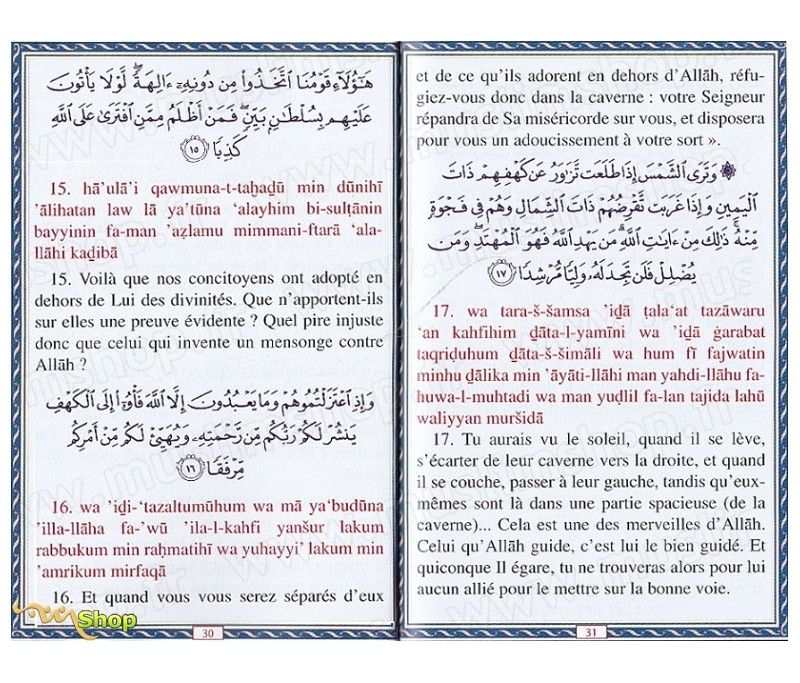 هَـٰٓؤُلَآءِ قَوْمُنَا ٱتَّخَذُوا۟ مِن دُونِهِۦٓ ءَالِهَةً ۖ لَّوْلَا يَأْتُونَ
عَلَيْهِم بِسُلْطَـٰنٍۭ بَيِّنٍ ۖ فَمَنْ أَظْلَمُ مِمَّنِ ٱفْتَرَىٰ عَلَى ٱللَّهِ
كَذِبًا ١٥
15. hā'ulā'i qawmuna-t-taḫaḏū min dūnihī
'ālihatan law lā ya'tūna 'alayhim bi-sulṭānin
bayyinin fa-man 'aẓlamu mimmani-ftarā ‘ala-
llāhi kaḏibā
15. Voilà que nos concitoyens ont adopté en
dehors de Lui des divinités. Que n'apportent-ils
sur elles une preuve évidente ? Quel pire injuste
donc que celui qui invente un mensonge contre
Allāh ?
وَإِذِ ٱعْتَزَلْتُمُوهُمْ وَمَا يَعْبُدُونَ إِلَّا ٱللَّهَ فَأْوُۥٓا۟ إِلَى ٱلْكَهْفِ
يَنشُرْ لَكُمْ رَبُّكُم مِّن رَّحْمَتِهِۦ وَيُهَيِّئْ لَكُم مِّنْ أَمْرِكُم
مِّرْفَقًا ١٦
16. wa 'iḏi-‘tazaltumūhum wa mā ya‘budūna
'illa-llāha fa-'wū 'ila-l-kahfi yanšur lakum
rabbukum min raḥmatihī wa yuhayyi' lakum min
'amrikum mirfaqā
16. Et quand vous vous serez séparés d'eux
30
Shop
et de ce qu'ils adorent en dehors d'Allāh, réfu-
giez-vous donc dans la caverne : votre Seigneur
répandra de Sa miséricorde sur vous, et disposera
pour vous un adoucissement à votre sort ».
۞ وَتَرَى ٱلشَّمْسَ إِذَا طَلَعَت تَّزَٰوَرُ عَن كَهْفِهِمْ ذَاتَ
ٱلْيَمِينِ وَإِذَا غَرَبَت تَّقْرِضُهُمْ ذَاتَ ٱلشِّمَالِ وَهُمْ فِى فَجْوَةٍ
مِّنْهُ ۚ ذَٰلِكَ مِنْ ءَايَـٰتِ ٱللَّهِ ۗ مَن يَهْدِ ٱللَّهُ فَهُوَ ٱلْمُهْتَدِ ۖ وَمَن
يُضْلِلْ فَلَن تَجِدَ لَهُۥ وَلِيًّا مُّرْشِدًا ١٧
17. wa tara-š-šamsa 'iḏā ṭala‘at tazāwaru
‘an kahfihim ḏāta-l-yamīni wa 'iḏā ġarabat
taqriḍuhum ḏāta-š-šimāli wa hum fī fajwatin
minhu ḏālika min 'āyāti-llāhi man yahdi-llāhu fa-
huwa-l-muhtadi wa man yuḍlil fa-lan tajida lahū
waliyyan muršidā
17. Tu aurais vu le soleil, quand il se lève,
s'écarter de leur caverne vers la droite, et quand
il se couche, passer à leur gauche, tandis qu'eux-
mêmes sont là dans une partie spacieuse (de la
caverne)... Cela est une des merveilles d'Allāh.
Celui qu'Allāh guide, c'est lui le bien guidé. Et
quiconque Il égare, tu ne trouveras alors pour lui
aucun allié pour le mettre sur la bonne voie.
31